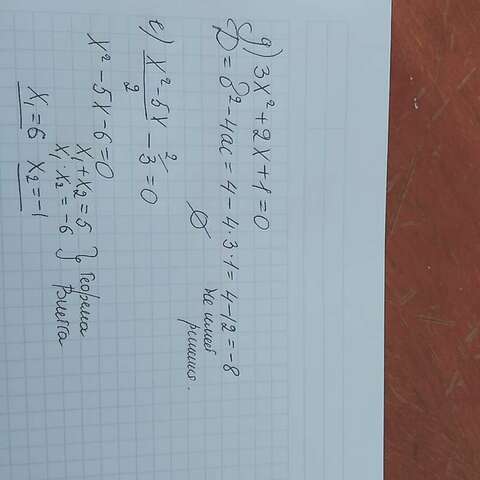 д) 3x² + 2x + 1 = 0
D = b² - 4ac = 4 - 4·3·1 = 4 - 12 = -8
∅ не имеет
решения.
е) (x² - 5x)/2 - 3 = 0
2
x² - 5x - 6 = 0
x₁ + x₂ = 5
x₁ · x₂ = -6 } Теорема
Виета
x₁ = 6 x₂ = -1